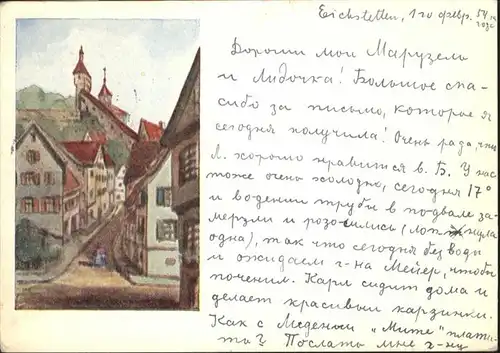 Eichstetten, 1го февр. 54 г.
Дорогии мои Марузель
и Лидочка! Большое спа-
сибо за письмо, которое я
сегодня получила! Очень рада, что
Л. хорошо нравится в Б. У нас
тоже очень холодно, сегодня 17°
и водении трубы в подвале за-
мерзли и (лопнула
одна), так что сегодня без води
и ожидаем г-на Мейер, чтобы
починил. Карл сидит дома и
делает красивыи карзинки.
Как с Меденыи "Мите" плат-
та? Послать мне г-ну